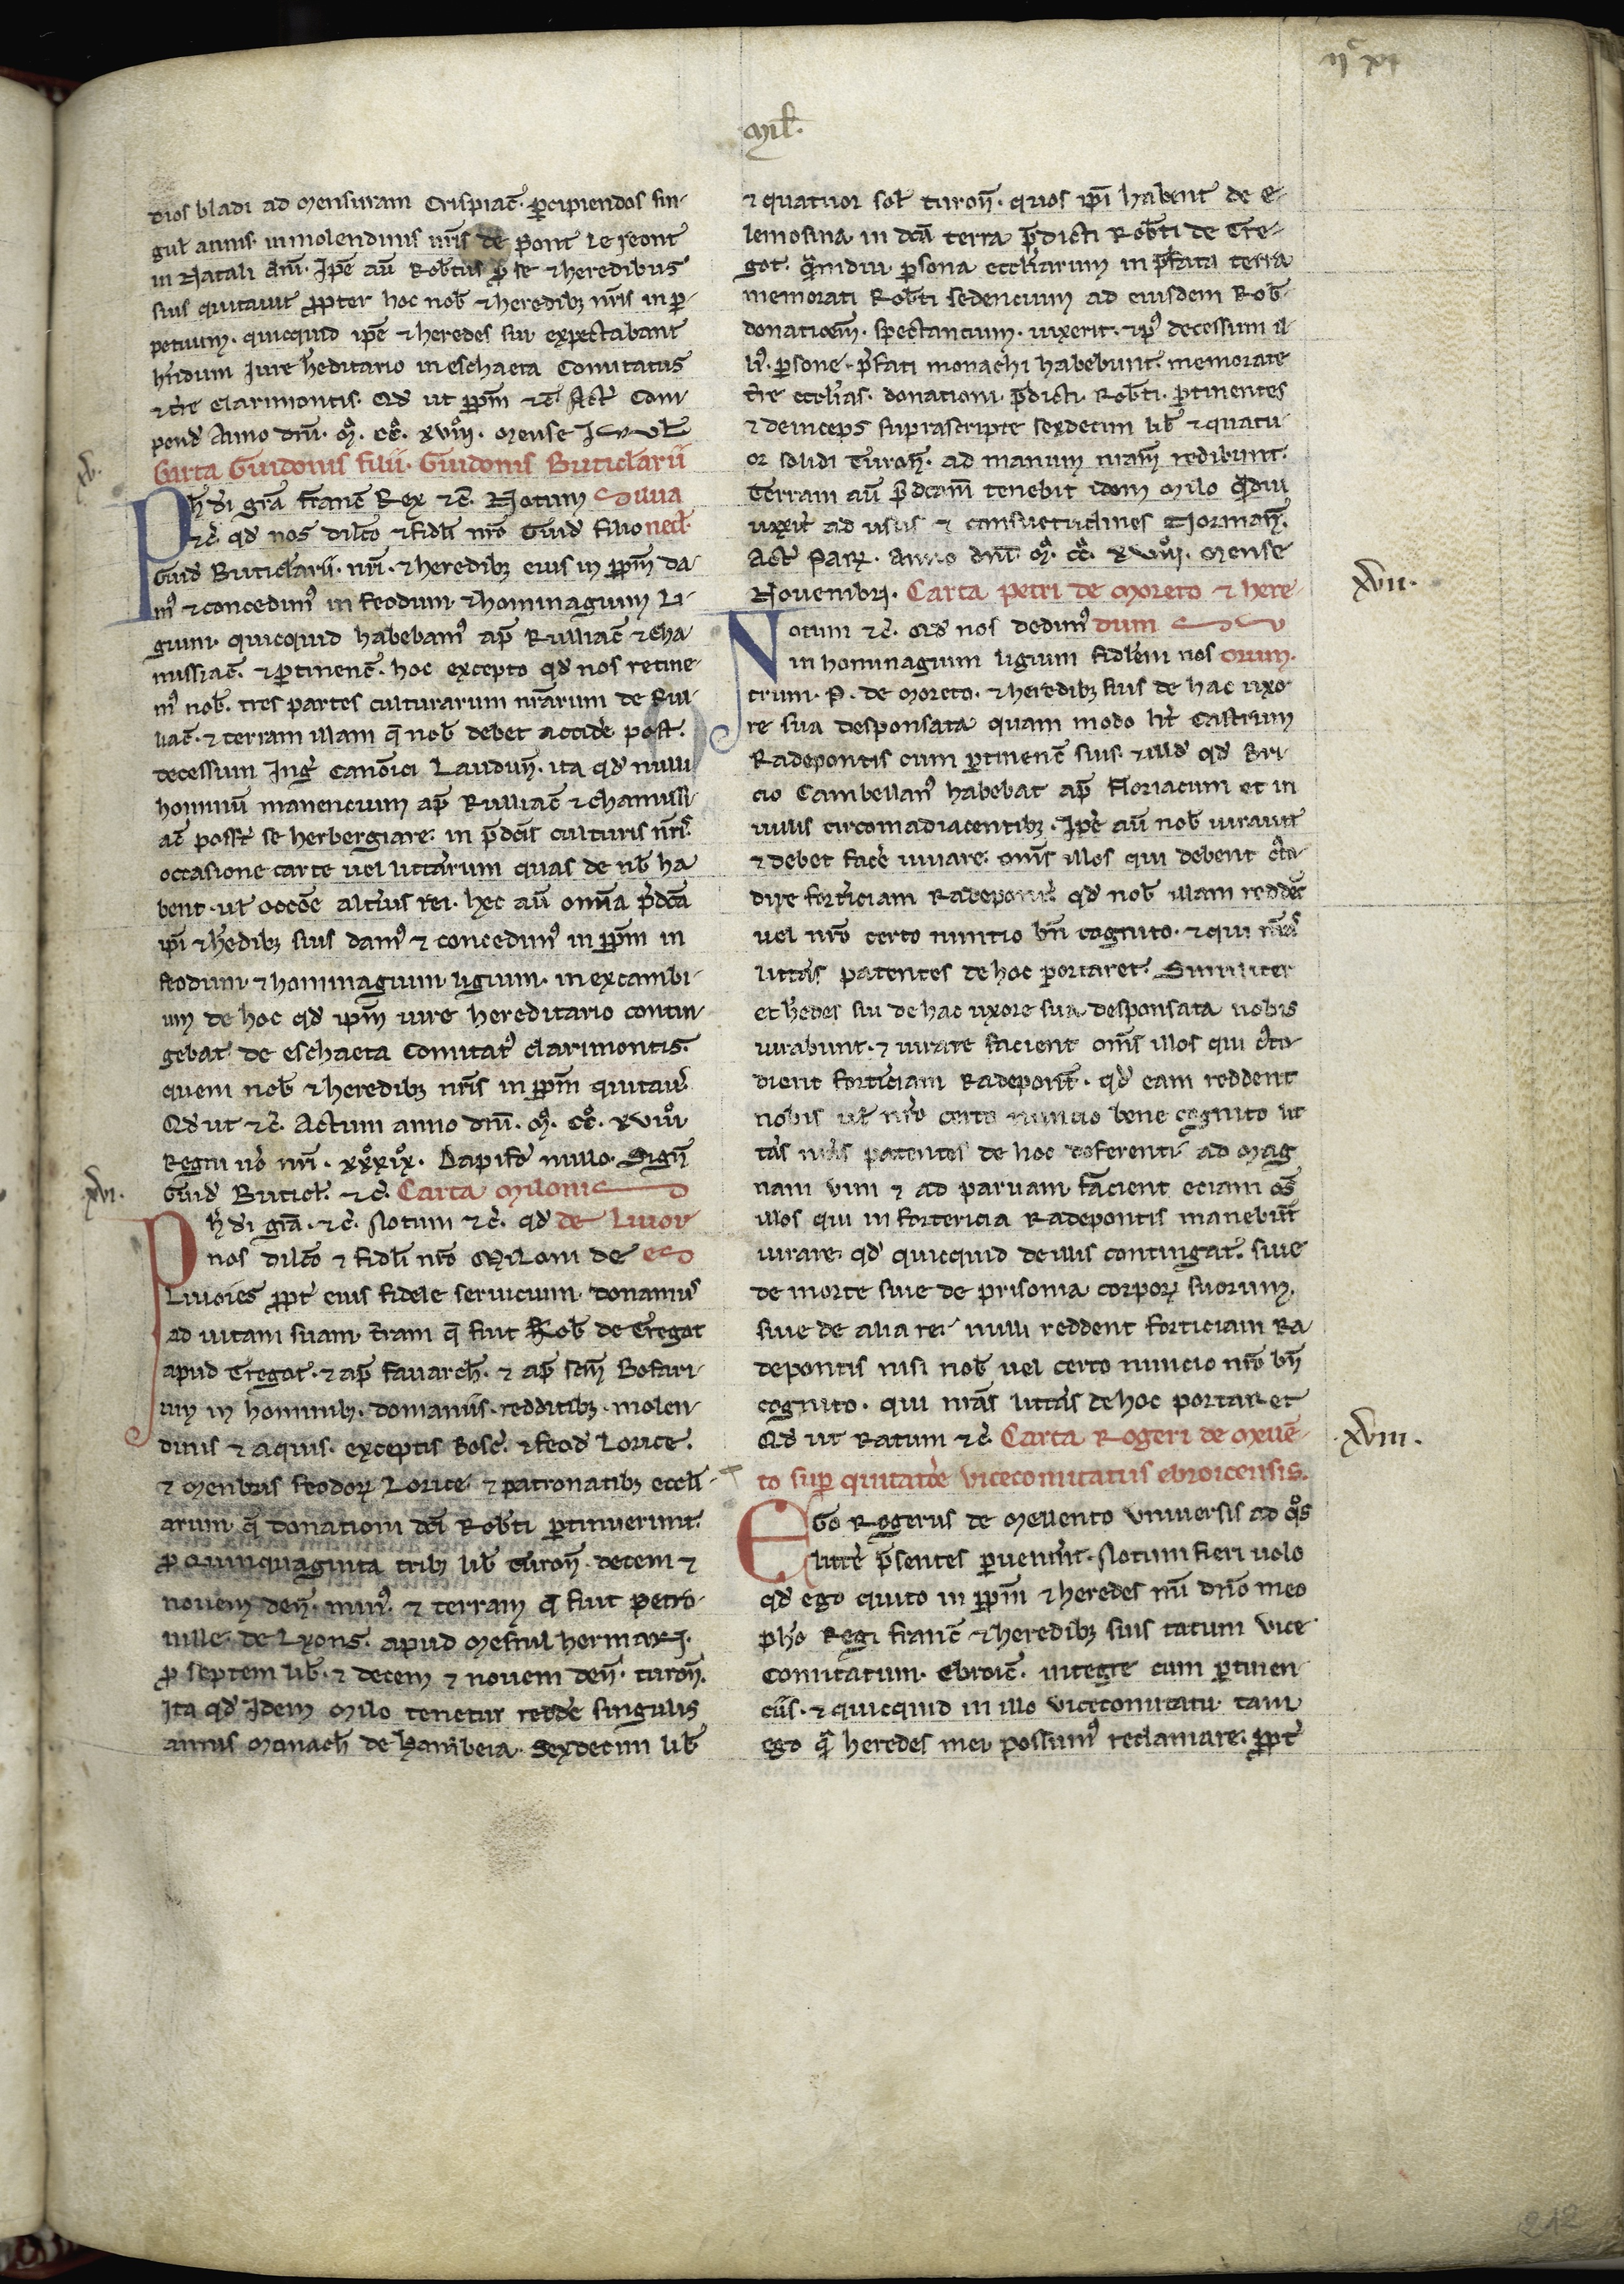 ijᶜ xj
Mil̃.
dios bladi ad mensuram Crispiac̃. ꝑcipiendos sin-
gul̃ annis. in molendinis nr̃is de Pont le reont
in Natali dñi. Ip̃e aũ Rob̃tus ꝓ se ⁊ heredibus
suis quitauit ꝓpter hoc nob̃ ⁊ heredibꝫ nr̃is in ꝑ-
petuum. quicquid ip̃e ⁊ heredes sui expectabant
hñdum iure h̃editario in eschaeta Comitatus
⁊ tr̃e clarimontis. Qd̃ ut ꝑpm̃ ⁊c̃. Act̃ Com-
pend̃ Anno dñi. mͦ. ccͦ. xviijͦ. mense Jul̃
xv.
Carta Guidonis filii. Guidonis Buticlarii
Ph̃ di gr̃a Franc̃ Rex ⁊c̃. Notum Silua
⁊c̃. qd̃ nos dilc̃o ⁊ fidl̃i nr̃o Guid̃ filio nect̃.
Guid̃ Buticlarii. nr̃i. ⁊ heredibꝫ eius in ꝑpm̃ da-
mꝰ ⁊ concedimꝰ in feodum ⁊ hominagium li-
gium. quicquid habebamꝰ ap̃ Rulliac̃ ⁊ cha-
missiac̃. ⁊ ꝑtinenc̃. hoc excepto qd̃ nos retine-
mꝰ nob̃. tres partes culturarum nr̃arum de Rul-
liac̃. ⁊ terram illam q̃ nob̃ debet accid̃e post
decessum Ing̃ canõici Laudun̄. ita qd̃ nulli
hominũ manencium ap̃ Rulliac̃ ⁊ chamissi-
ac̃ posst̃ se herbergiare. in p̃dc̃is culturis nr̃is.
occasione carte uel litt̃arum quas de nob̃ ha
bent. ul̃ occõe alt̃ius rei. hec aũ om̃ia p̃dc̃a
ip̃i ⁊ h̃edibꝫ suis damꝰ ⁊ concedimꝰ in ꝑpm̃ in
feodum ⁊ hominagium ligium. in excambi-
um de hoc qd̃ ip̃m iure hereditario contin-
gebat de eschaeta Comitatꝰ clarimontis.
quem nob̃ ⁊ heredibꝫ nr̃is in ꝑpm̃ quitauĩt.
Qd̃ ut ⁊c̃. Actum anno dñi. mͦ. ccͦ. xviijͦ
Regni uͦ nr̃i. xxxixͦ. Dapifo nullo. Sign̄
xvi.
Guid̃ Buticl̃. ⁊c̃. Carta Miloni
Ph̃ di gr̃a. ⁊c̃. Notum ⁊c̃. qd̃ de liuor
nos dilc̃o ⁊ fidl̃i nr̃o Miloni de es
Liuoies ꝓpt̃ eius fidele seruicium donamus
ad uitam suam. t̃ram q̃ fuit Rob̃ de Tregot
apud Tregot. ⁊ ap̃ fauarch̃. ⁊ ap̃ scm̃ Bofari-
um in hominibꝫ. domaniis. redditibꝫ. molen-
dinis ⁊ aquis. exceptis bosc̃. ⁊ feod̃ lorice.
⁊ menbris feodoꝝ lorice ⁊ patronatibꝫ eccl̃i-
arum. q̃ donationi dc̃i Rob̃ti ꝑtinuerunt.
ꝓ Quinquaginta tribꝫ lib̃ turon̄. decem ⁊
nouem den̄. minꝰ. ⁊ terram q̃ fuit petro-
uille de Lyons. apud mesnil hermarj.
ꝓ septem lib̃. ⁊ decem ⁊ nouem den̄. turon̄.
Ita qd̃ Idem Milo tenetur redd̃e singulis
annis Monach̃ de Hambeia. Sexdecim lib̃
⁊ quatuor sol̃ turon̄. quos ip̃i habent de e-
lemosina in dc̃a terra p̃dicti Rob̃ti de Tre-
got. q̃mdiu ꝑsona eccl̃iarum in p̃fata terra
memorati Rob̃ti sedencium ad eiusdem Rob̃
donationem̃. spectancium. uixerit. ⁊ pꝰ decessum il-
liꝰ. ꝑsone. p̃fati monachi habebunt memorate
tr̃e eccl̃ias. donationi p̃dicti Rob̃ti. ꝑtinentes
⁊ deinceps suprascripte sexdecim lib̃ ⁊ quatu-
or solidi Turon̄. ad manum nr̃am redibunt.
Terram aũ p̃dcam̃ tenebit idem Milo q̃diu
uixit̃ ad usus ⁊ consuetudines Norman̄.
Act̃ Parꝝ. anno dñi mͦ. ccͦ. xviijͦ. mense
xvii.
Nouembrj. Carta Petri de Moreto ⁊ here-
Notum ⁊c̃. Qd̃ nos dedimꝰ dum
in hominagium ligium fidl̃em nos orum.
trum. P. de Moreto. ⁊ heredibꝫ suis de hac uxo
re sua desponsata quam modo ht̃ Castrum
Radepontis cum ꝑtinenc̃ suis. ⁊ illd̃ qd̃ Bri-
cio Cambellanꝰ habebat ap̃ Floriacum et in
uillis circomadiacentibꝫ. Ip̃e aũ nob̃ iurauit
⁊ debet fac̃e iurare. om̃s illos qui debent cus̃to-
dire fort̃iciam Radepont̃. qd̃ nob̃ illam reddẽt
uel nr̃o certo nuntio bn̄ cognito. ⁊ qui nr̃as
litt̃as patentes de hoc portaret. Similiter
et h̃edes sui de hac uxore sua desponsata nobis
iurabunt. ⁊ iurare facient om̃s illos qui cus̃to-
dient fort̃iciam Radepont̃. qd̃ eam reddent
nobis ul̃ nr̃o certo nuncio bene cognito lit
t̃as nr̃as patentes de hoc deferenti ad mag
nam uim ⁊ ad paruam. facient eciam om̃s
illos qui in fortericia Radepontis manebũt
iurare. qd̃ quicquid de illis contingat. siue
de morte siue de prisonia corpoꝝ suorum.
siue de alia re. nulli reddent forticiam Ra
depontis nisi nob̃ uel certo nuncio nr̃o bn̄
cognito. qui nr̃as litt̃as de hoc portaret
xviii.
Qd̃ ut ratum ⁊c̃. Carta Rogeri de Meuẽ-
to suꝑ quitatõe vicecomitatus ebroicensis.
Ego Rogerus de Meuento Vniuersis ad qͦs
litt̃e p̃sentes ꝑuenĩnt. Notum fieri uolo
qd̃ ego quito in ꝑpm̃ ⁊ heredes mei dño meo
ph̃o Regi Franc̃ ⁊ heredibꝫ suis totum vice
Comitatum. Ebroic̃. integre cum ꝑtinen
ciis. ⁊ quicquid in illo vicecomitatu tam
ego q̃ heredes mei possumꝰ reclamare. ꝓpt̃
212